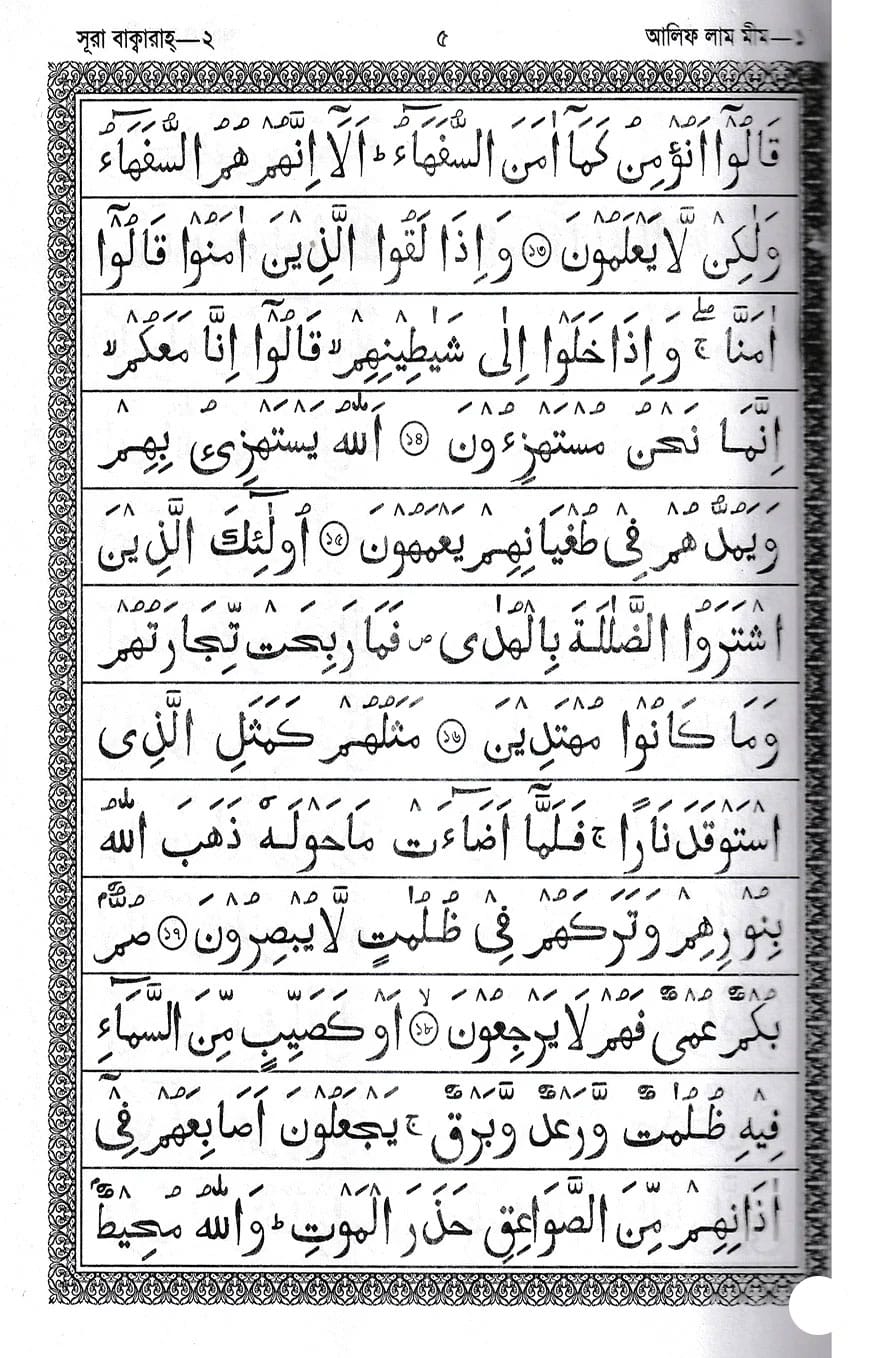 সূরা বাক্বারাহ্—২ ৫ আলিফ লাম মীম—১
قَالُوْۤا اَنُؤْمِنُ كَمَاۤ اٰمَنَ السُّفَهَآءُ ؕ اَلَاۤ اِنَّهُمْ هُمُ السُّفَهَآءُ
وَلٰكِنْ لَّا يَعْلَمُوْنَ ১৩ وَ اِذَا لَقُوا الَّذِيْنَ اٰمَنُوْا قَالُوْۤا
اٰمَنَّا ۚۖ وَ اِذَا خَلَوْا اِلٰى شَيٰطِيْنِهِمْ ۙ قَالُوْۤا اِنَّا مَعَكُمْ ۙ
اِنَّمَا نَحْنُ مُسْتَهْزِءُوْنَ ১৪ اَللّٰهُ يَسْتَهْزِئُ بِهِمْ
وَيَمُدُّهُمْ فِىْ طُغْيَانِهِمْ يَعْمَهُوْنَ ১৫ اُولٰٓئِكَ الَّذِيْنَ
اشْتَرَوُا الضَّلٰلَةَ بِالْهُدٰى ۪ فَمَا رَبِحَتْ تِّجَارَتُهُمْ
وَمَا كَانُوْا مُهْتَدِيْنَ ১৬ مَثَلُهُمْ كَمَثَلِ الَّذِى
اسْتَوْقَدَ نَارًا ۚ فَلَمَّاۤ اَضَآءَتْ مَا حَوْلَهٗ ذَهَبَ اللّٰهُ
بِنُوْرِهِمْ وَتَرَكَهُمْ فِىْ ظُلُمٰتٍ لَّا يُبْصِرُوْنَ ১৭ صُمٌّۢ
بُكْمٌ عُمْىٌ فَهُمْ لَا يَرْجِعُوْنَ ۙ ১৮ اَوْ كَصَيِّبٍ مِّنَ السَّمَآءِ
فِيْهِ ظُلُمٰتٌ وَّرَعْدٌ وَّبَرْقٌ ۚ يَجْعَلُوْنَ اَصَابِعَهُمْ فِىْۤ
اٰذَانِهِمْ مِّنَ الصَّوَاعِقِ حَذَرَ الْمَوْتِ ؕ وَاللّٰهُ مُحِيْطٌۢ